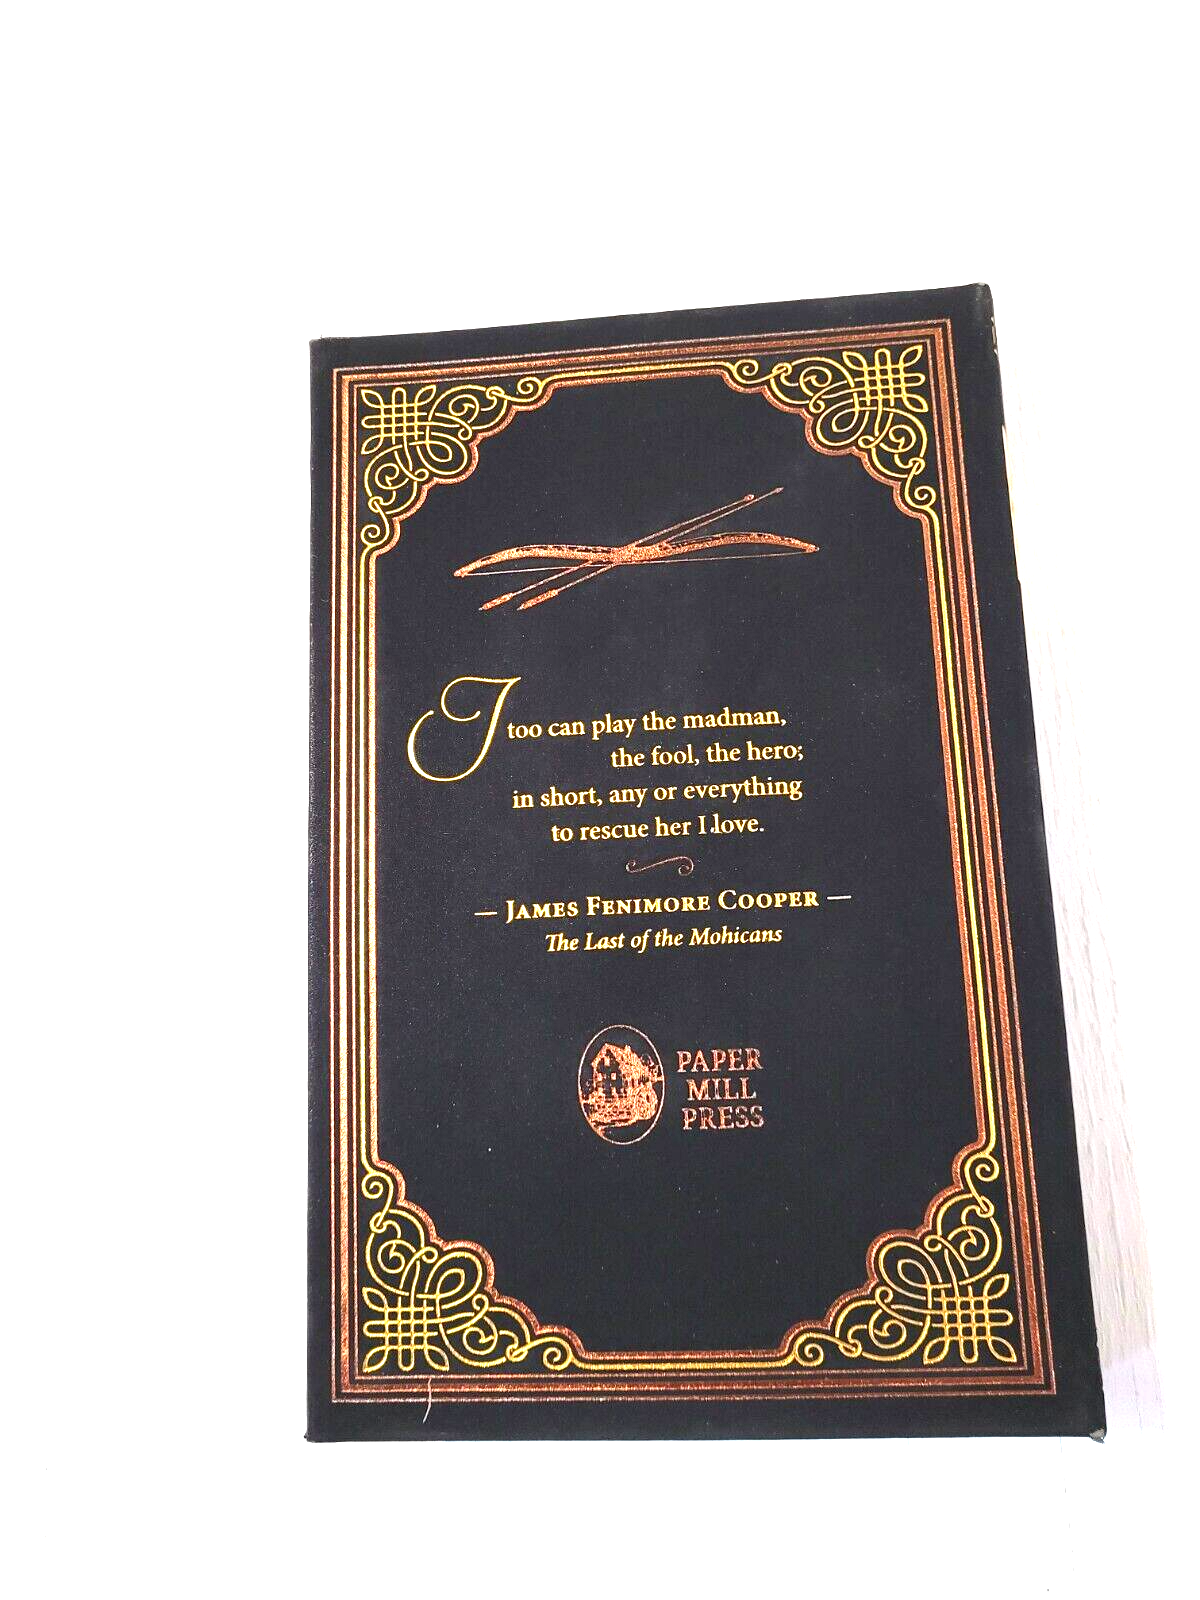 I too can play the madman,
the fool, the hero;
in short, any or everything
to rescue her I love.
— JAMES FENIMORE COOPER —
The Last of the Mohicans
PAPER
MILL
PRESS